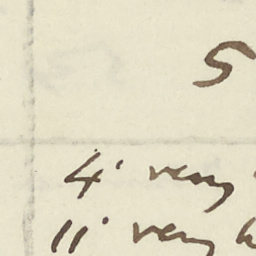 5
4' very
11' very